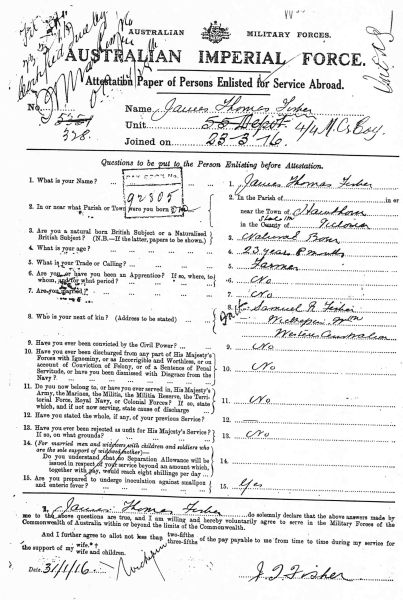 AUSTRALIAN MILITARY FORCES.
AUSTRALIAN IMPERIAL FORCE.
Attestation Paper of Persons Enlisted for Service Abroad.
No. 328. Name James Thomas Fisher
Unit 55 Depot. 4/4 M. G. Coy
Joined on 23-3-16.
Questions to be put to the Person Enlisting before Attestation.
1. What is your Name? 1. James Thomas Fisher
92305
2. In or near what Parish or Town were you born? 2. In the Parish of in or
near the Town of Hawthorn
in the County of Victoria
3. Are you a natural born British Subject or a Naturalised
British Subject? (N.B.—If the latter, papers to be shown.) 3. Natural Born
4. What is your age? 4. 23 years
5. What is your Trade or Calling? 5. Farmer
6. Are you or have you been an Apprentice? If so, where, to
whom, and for what period? 6. No
7. Are you married? 7. No
8. Who is your next of kin? (Address to be stated) 8. Samuel R Fisher
Western Australia
9. Have you ever been convicted by the Civil Power? 9. No
10. Have you ever been discharged from any part of His Majesty's
Forces with Ignominy, or as Incorrigible and Worthless, or on
account of Conviction of Felony, or of a Sentence of Penal
Servitude, or have you been Dismissed with Disgrace from the
Navy? 10. No
11. Do you now belong to, or have you ever served in, His Majesty's
Army, the Marines, the Militia, the Militia Reserve, the Territorial
Force, Royal Navy, or Colonial Forces? If so, state
which, and if not now serving, state cause of discharge 11. No
12. Have you stated the whole, if any, of your previous Service? 12.
13. Have you ever been rejected as unfit for His Majesty's Service?
If so, on what grounds? 13. No
14. (For married men and widowers with children and soldiers who
are the sole support of widowed mother)—
Do you understand that no Separation Allowance will be
issued in respect of your service beyond an amount which,
together with pay, would reach eight shillings per day? 14.
15. Are you prepared to undergo inoculation against smallpox
and enteric fever? 15. Yes
I, James Thomas Fisher do solemnly declare that the above answers made by
me to the above questions are true, and I am willing and hereby voluntarily agree to serve in the Military Forces of the
Commonwealth of Australia within or beyond the limits of the Commonwealth.
And I further agree to allot not less than two-fifths three-fifths of the pay payable to me from time to time during my service for
the support of my wife. wife and children.
Date 31/1/16 J. T. Fisher